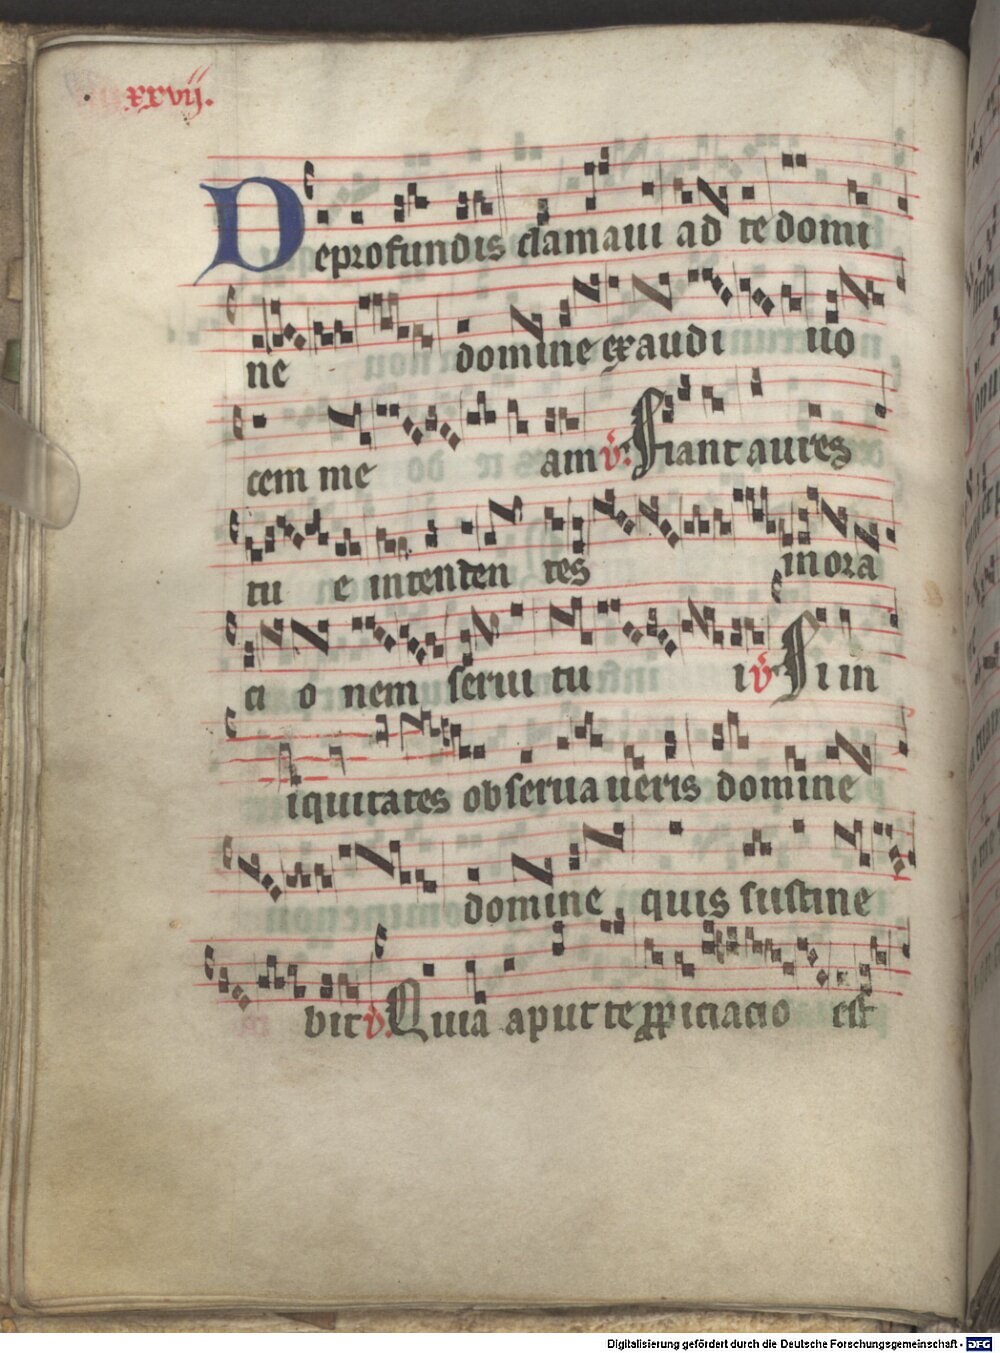 xxvij.
De profundis clamaui ad te domi
ne domine exaudi uo
cem me am v̇. Fiant aures
tu e intenden tes in ora
ci o nem serui tu i v̇ Si in
iquitates obseruaueris domine
domine, quis sustine
bit v̇. Quia aput te ꝓpiciacio est
Digitalisierung gefördert durch die Deutsche Forschungsgemeinschaft - DFG